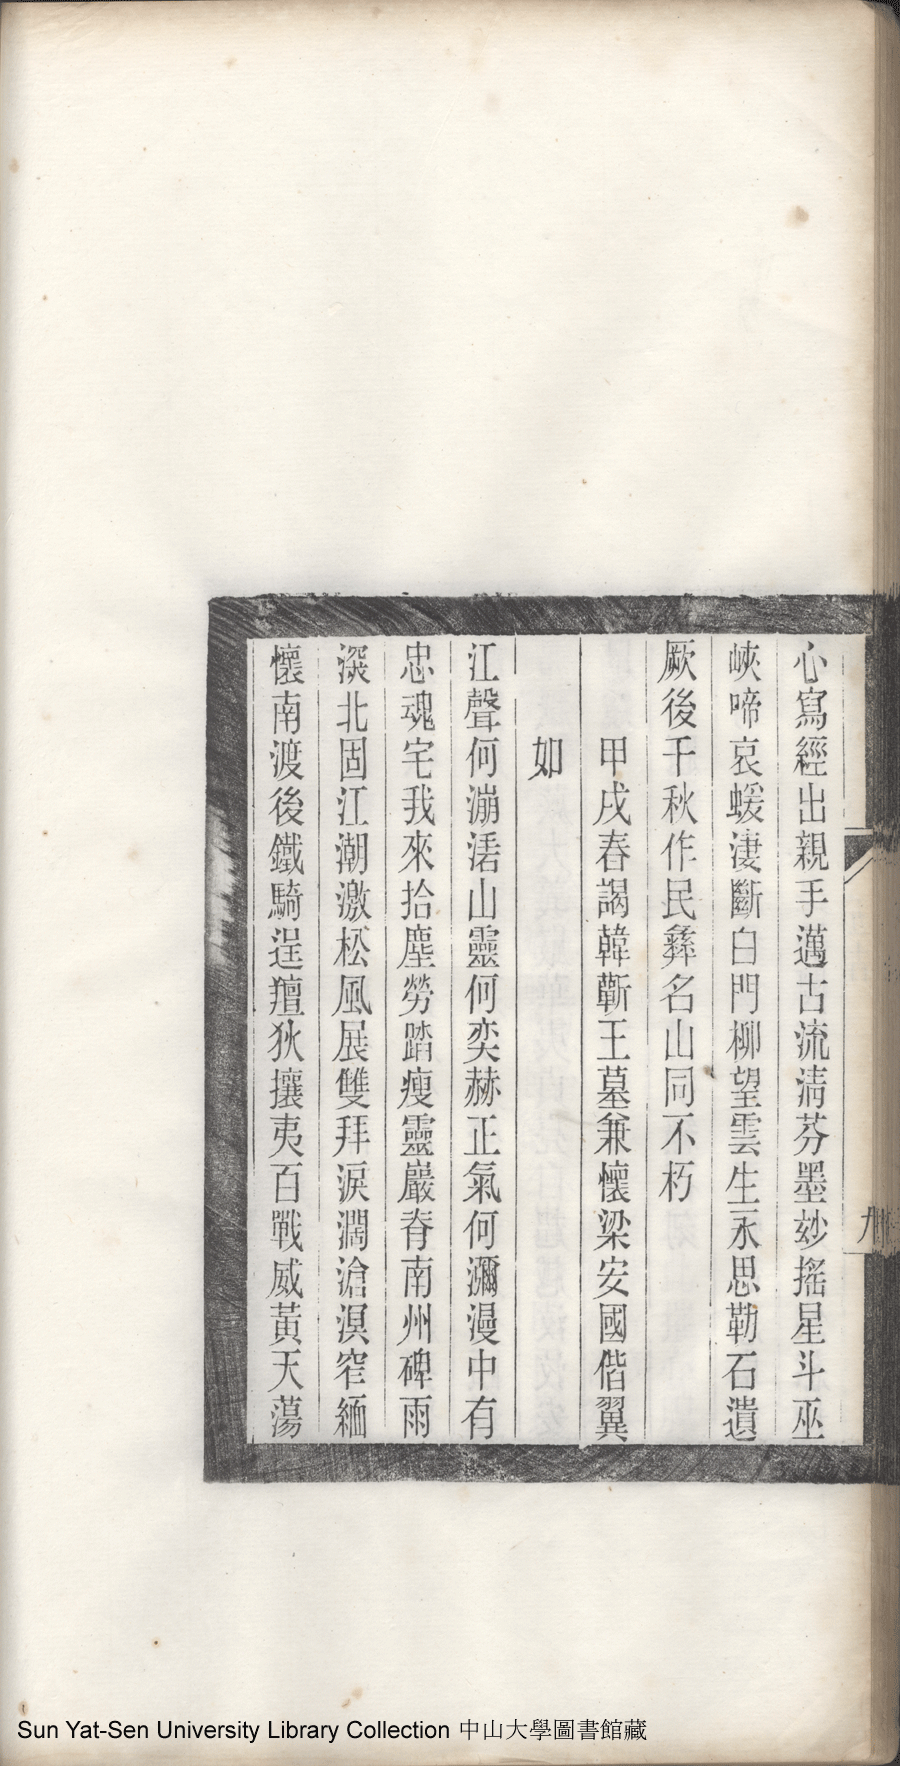 心寫經出親手邁古流清芬墨妙搖星斗巫
峽啼哀蝯淒斷白門柳望雲生永思勒石遺
厥後千秋作民彝名山同不朽
甲戌春謁韓蘄王墓兼懷梁安國偕翼
如
江聲何漰湱山靈何奕赫正氣何瀰漫中有
忠魂宅我來拾塵勞踏瘦靈巖脊南州碑雨
深北固江潮激松風展雙拜淚濶滄溟窄緬
懷南渡後鐵騎逞羶狄攘夷百戰威黃天蕩
九
Sun Yat-Sen University Library Collection 中山大學圖書館藏